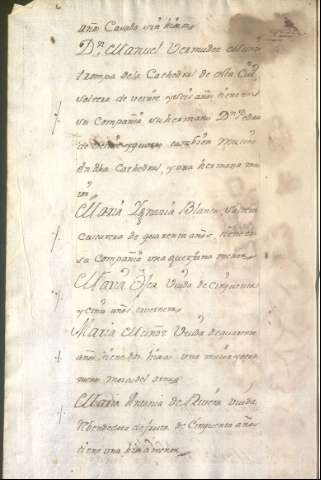 años Casado sin hixos
Dn. Manuel Vermudez
trompa de la Cathedral de esta Ciud.
soltero de veinte y seis años, tiene en
su Compañia su hermano Dn.
de y quatro tambien musico
en dha Cathedral, y una hermana me
nor
Maria Ygnacia Blanco, soltera
Custurera de quarenta años, tiene en
su Compañia una querfana menor
Maria Viuda de Cinquenta
y Cinco años
Maria Muñoz Viuda de quarenta
años tiene dos hixas una maior y otra
menor
Maria Antonia de Rivera Viuda
de Cinquenta años
tiene una hixa menor